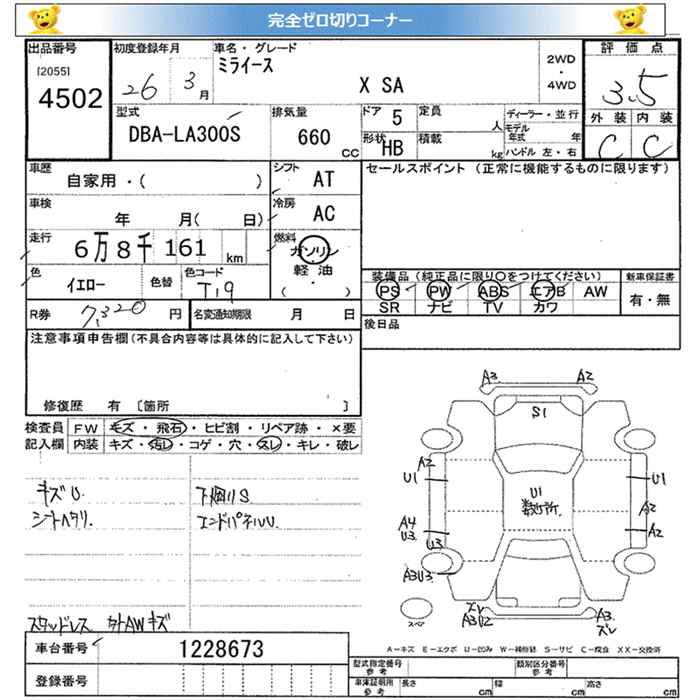 完全ゼロ切りコーナー
出品番号 初度登録年月 車名・グレード 2WD・4WD 評価点
[2055] 4502 26 3月 ミライース X SA 3.5
型式 排気量 ドア 5 定員 人 ディーラー・並行 外装 内装
DBA-LA300S 660 CC 形状 HB 積載 kg モデル年式 年 ハンドル 左・右 C C
車歴 自家用・( ) シフト AT セールスポイント (正常に機能するものに限ります)
車検 年 月( 日) 冷房 AC
走行 6万8千161 km 燃料 ガソリン・軽油 ( ・ )
色 イエロー 色替 色コード T19 装備品 (純正品に限り〇をつけてください) 新車保証書
PS PW ABS エアB AW 有・無
SR ナビ TV カワ
R券 7,320 円 名変通知期限 月 日 後日品
注意事項申告欄(不具合内容等は具体的に記入して下さい)
修復歴 有 〔箇所 〕
検査員 FW キズ・飛石・ヒビ割・リペア跡・×要
記入欄 内装 キズ・汚レ・コゲ・穴・スレ・キレ・破レ
キズU 下廻りS
シートヘタリ エンドパネルU
スタッドレス 社外AWキズ
A3 A2
S1
A2
U1 U1 U1
数ケ所 A2
A4 A2
U3 U3
A3U3
スペア ズレ A3U2 A3 ズレ
A－キズ E－エクボ U－凹み W－補修跡 S－サビ C－腐食 XX－交換済
車台番号 1228673 型式指定番号 参考 類別区分番号 参考
登録番号 車庫証明用 参考 長さ cm 幅 cm 高さ cm